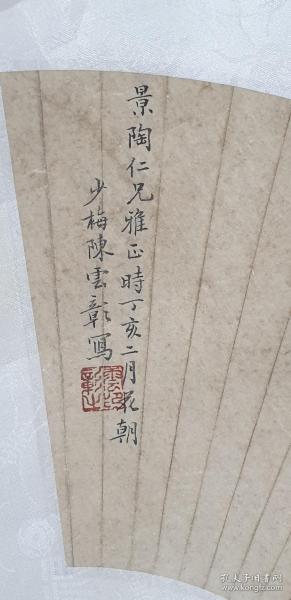 景陶仁兄雅正時丁亥二月花朝
少梅陳雲彰寫
孔夫子旧书网